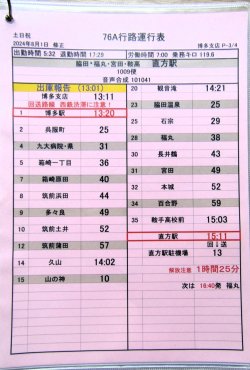 土日祝
76A行路運行表
2024年8月1日 修正
博多支店 P-3/4
出勤時間 5:32 退勤時間 17:29 労働時間 7:00 乗務キロ 119.6
脇田・福丸・宮田・鞍高 直方駅
1009便
音声合成 101041
出庫報告 (13:01)
博多支店 13:11
回送路線 西鉄渋滞に注意!
1 博多駅 13:20
2 呉服町 25
4 九大病院・県 31
5 箱崎一丁目 36
7 箱崎原田 40
8 筑前浜田 44
9 多々良 49
10 筑前土井 52
12 筑前蒲田 57
14 久山 14:02
15 山の神 10
20 観音滝 14:21
23 脇田温泉 25
25 福丸 38
30 長井鶴 43
31 宮田 49
32 本城 52
34 百合野 59
35 鞍手高校前 15:03
直方駅 15:11
回送
直方駅駐機場 13
解放注意 1時間25分
次は 16:40発 福丸